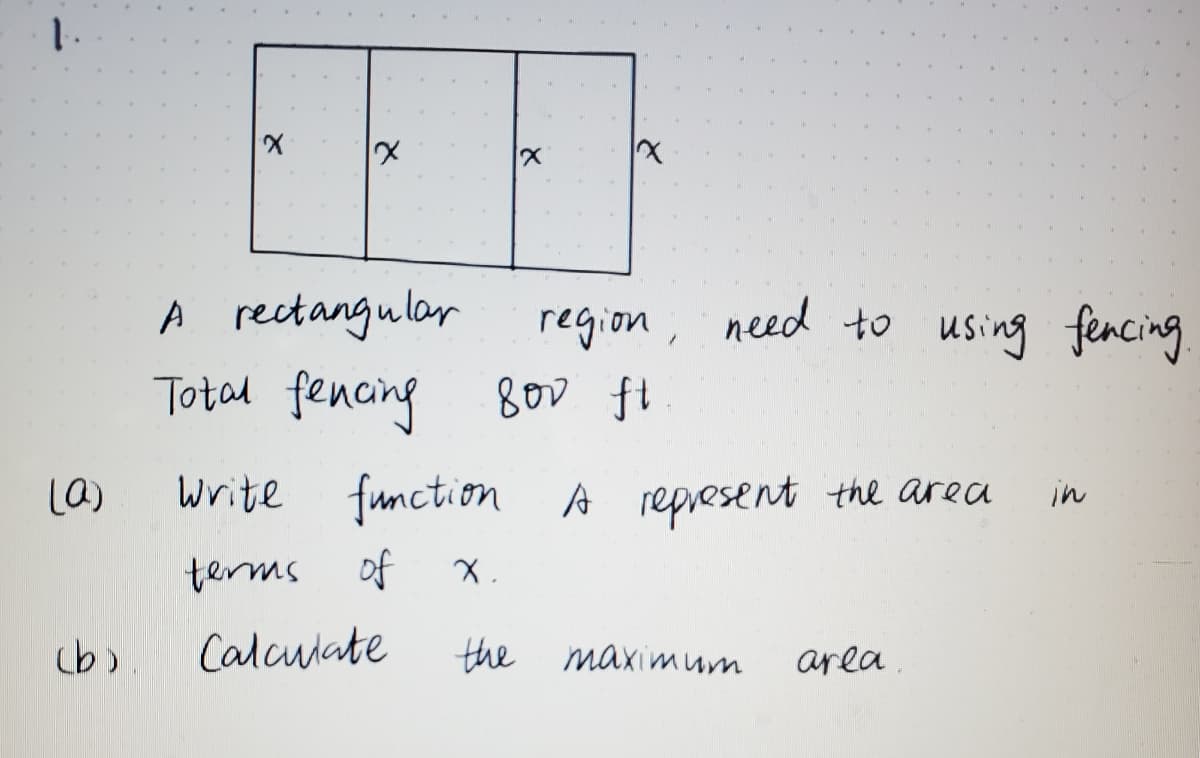 1.
x x x x
A rectangular region, need to using fencing.
Total fencing 800 ft.
(a) Write function A represent the area in
terms of x.
(b). Calculate the maximum area.